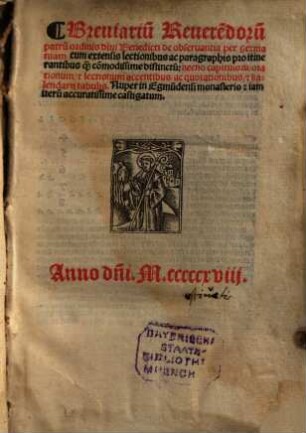 Breviariũ Reuerẽdorũ
patrũ ordinis diui Benedicti de obseruantia per Germa
niam cum extensis lectionibus ac paragraphis pro itine
rantibus q̃ cõmodissime distinctis: necnon capitulorũ ora
tionum: ⁊ lectionum accentibus ac quotationibus: ⁊ ka
lendarii tabulis. Nuper in
monasterio: iam
vero accuratissime castigatum.
Anno dñi. M. cccccxviij.
BAYERISCHE
STAATS-
BIBLIOTHEK
MUENCHEN